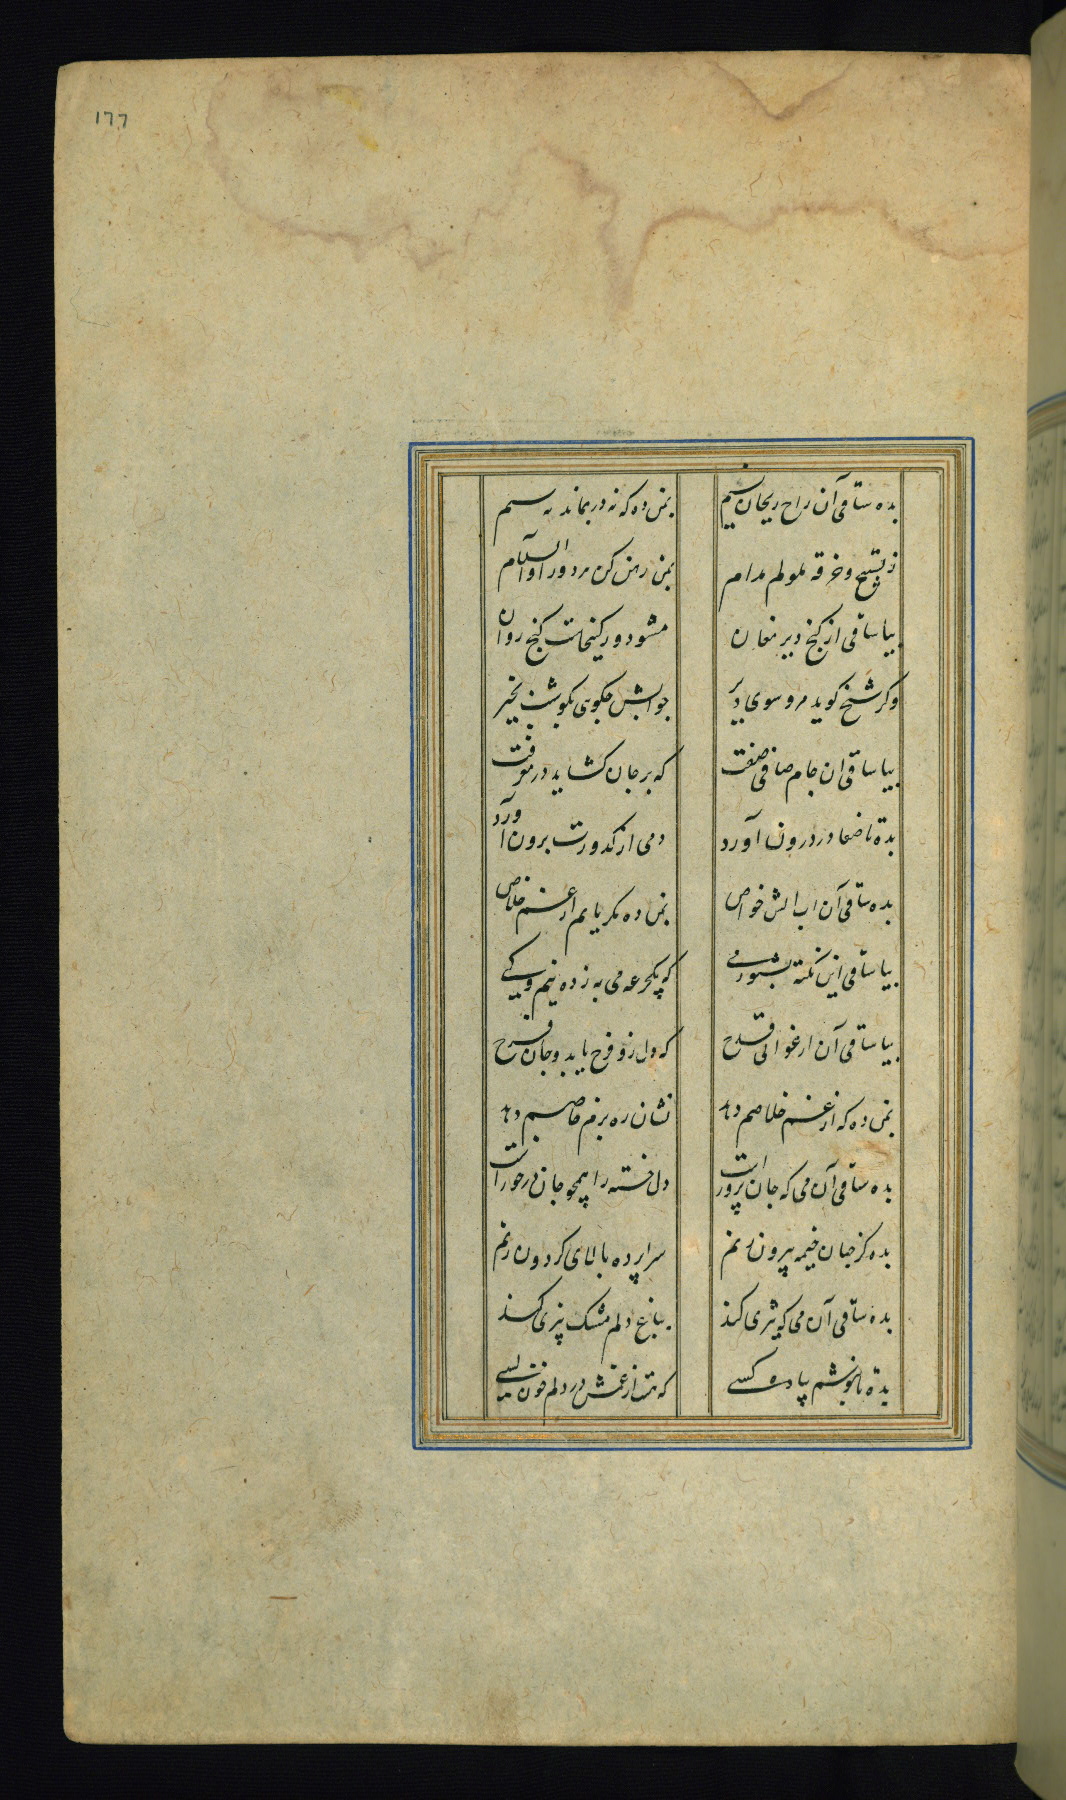 ١٧٧
بده ساقی آن راح ریحان نسیم بمن ده که نه زر بماند نه سیم
ز تسبیح و خرقه ملولم مدام بمن رهن کن هر دو را والسلام
بیا ساقی از کنج دیر مغان مشو دور کینجاست گنج روان
وگر شیخ گوید مرو سوی دیر جوابش چگویی بگو شب بخیر
بیا ساقی ان جام صافی صفت که بر جان گشاید در معرفت
بده تا صفا در درون آورد دمی از کدورت برون آورد
بده ساقی آن اب اتش خواص بمن ده مگر یابم از غم خلاص
بیا ساقی این نکته بشنو ز نی که یکجرعه می به ز دیهیم کی
بیا ساقی آن ارغوانی قدح که دل زو فرح یابد و جان فرح
بمن ده که از غم خلاصم دهد نشان ره بزم خاصم دهد
بده ساقی آن می که جان پرورست دل خسته را همچو جان درخورست
بده کز جهان خیمه بیرون زنم سراپرده بالای گردون زنم
بده ساقی آن می که تیزی کند بباغ دلم مشک بیزی کند
بده تا بنوشم بیاد کسی که هست از غمش در دلم خون بسی